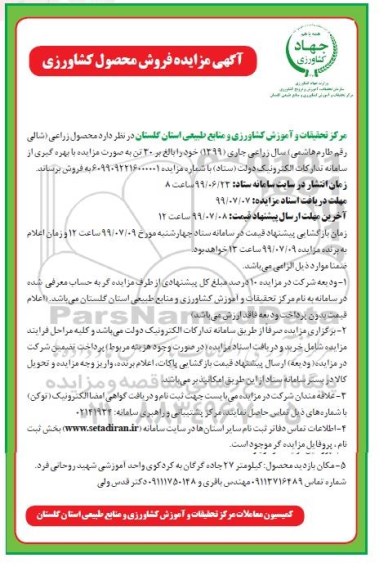 همیشه با هم
جهاد
کشاورزی
وزارت جهاد کشاورزی
سازمان تحقیقات، آموزش و ترویج کشاورزی
مرکز تحقیقات و آموزش کشاورزی و منابع طبیعی گلستان
آگهی مزایده فروش محصول کشاورزی
مرکز تحقیقات و آموزش کشاورزی و منابع طبیعی استان گلستان در نظر دارد محصول زراعی (شالی
رقم طارم هاشمی) سال زراعی جاری (۱۳۹۹) خود را بالغ بر ۳۰ تن به صورت مزایده با بهره گیری از
سامانه تدارکات الکترونیک دولت (ستاد) با شماره مزایده ۶۰۹۹۰۹۲۲۱۶۰۰۰۰۰۱ به فروش برساند.
زمان انتشار در سایت سامانه ستاد: ۹۹/۰۶/۲۳ ساعت ۸
مهلت دریافت اسناد مزایده: ۹۹/۰۷/۰۷
آخرین مهلت ارسال پیشنهاد قیمت: ۹۹/۰۷/۰۸ ساعت ۱۲
زمان بازگشایی پیشنهاد قیمت در سامانه ستاد چهارشنبه مورخ ۹۹/۰۷/۰۹ ساعت ۱۲ و زمان اعلام
به برنده مزایده ۹۹/۰۷/۰۹ ساعت ۱۳ خواهد بود.
ضمنا موارد ذیل الزامی می‌باشد.
۱- ودیعه شرکت در مزایده ۱۰ درصد مبلغ کل پیشنهادی از طرف مزایده گر به حساب معرفی شده
در سامانه به نام مرکز تحقیقات و آموزش کشاورزی و منابع طبیعی استان گلستان می‌باشد. (اعلام
قیمت بدون پرداخت ودیعه فاقد ارزش می‌باشد)
۲- برگزاری مزایده صرفا از طریق سامانه تدارکات الکترونیک دولت می‌باشد و کلیه مراحل فرایند
مزایده شامل خرید و دریافت اسناد مزایده (در صورت وجود هزینه مربوط) پرداخت تضمین شرکت
در مزایده (ودیعه) ارسال پیشنهاد قیمت بازگشایی پاکات، اعلام برنده، واریز وجه مزایده و تحویل
کالا در بستر سامانه ستاد از این طریق امکانپذیر می‌باشد.
۳- علاقه مندان شرکت در مزایده می‌بایست جهت ثبت نام و دریافت گواهی امضا الکترونیک (توکن)
با شماره‌های ذیل تماس حاصل نمایند: مرکز پشتیبانی و راهبری سامانه: ۰۲۱۴۱۹۳۴
۴- اطلاعات تماس دفاتر ثبت نام سایر استان‌ها در سایت سامانه (www.setadiran.ir) بخش ثبت
نام، پروفایل مزایده گر موجود است.
۵- مکان بازدید محصول: کیلومتر ۲۷ جاده گرگان به کردکوی واحد آموزشی شهید روحانی فرد.
شماره تماس ۰۹۱۱۳۷۱۶۴۸۹ مهندس باقری و ۰۹۱۱۱۷۵۰۱۴۸ دکتر قدس ولی
کمیسیون معاملات مرکز تحقیقات و آموزش کشاورزی و منابع طبیعی استان گلستان